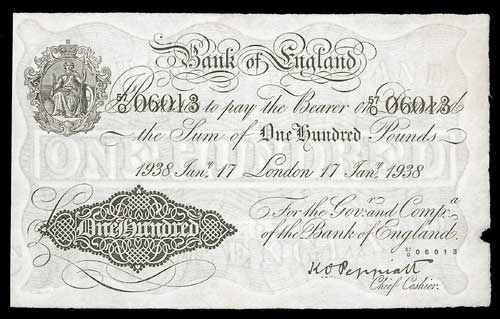 Bank of England
57/O 06013 to pay the Bearer on 57/O 06013
the Sum of One Hundred Pounds
1938 Janʸ. 17 London 17 Janʸ. 1938
For the Govʳ. and Compᵃ.
of the Bank of England.
57/O 06013
One Hundred
K O Peppiatt
Chief Cashier.